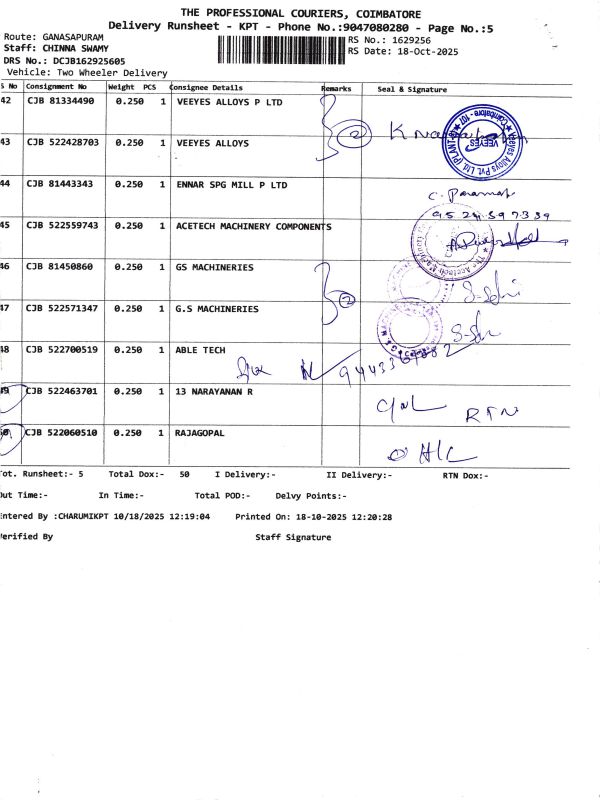 THE PROFESSIONAL COURIERS, COIMBATORE
Delivery Runsheet - KPT - Phone No.:9047080280 - Page No.:5
Route: GANASAPURAM
RS No.: 1629256
Staff: CHINNA SWAMY
RS Date: 18-Oct-2025
DRS No.: DCJB162925605
Vehicle: Two Wheeler Delivery
S No Consignment No Weight PCS Consignee Details Remarks Seal & Signature
42 CJB 81334490 0.250 1 VEEYES ALLOYS P LTD
2
43 CJB 522428703 0.250 1 VEEYES ALLOYS
Veeyes Alloys Pvt. Ltd. (PLANT-II)
VEEYES
44 CJB 81443343 0.250 1 ENNAR SPG MILL P LTD
45 CJB 522559743 0.250 1 ACETECH MACHINERY COMPONENTS
46 CJB 81450860 0.250 1 GS MACHINERIES
2
47 CJB 522571347 0.250 1 G.S MACHINERIES
48 CJB 522700519 0.250 1 ABLE TECH
49 CJB 522463701 0.250 1 13 NARAYANAN R
RTN
50 CJB 522060510 0.250 1 RAJAGOPAL
Tot. Runsheet:- 5 Total Dox:- 50 I Delivery:- II Delivery:- RTN Dox:-
Out Time:- In Time:- Total POD:- Delvy Points:-
Entered By :CHARUMIKPT 10/18/2025 12:19:04 Printed On: 18-10-2025 12:20:28
Verified By Staff Signature